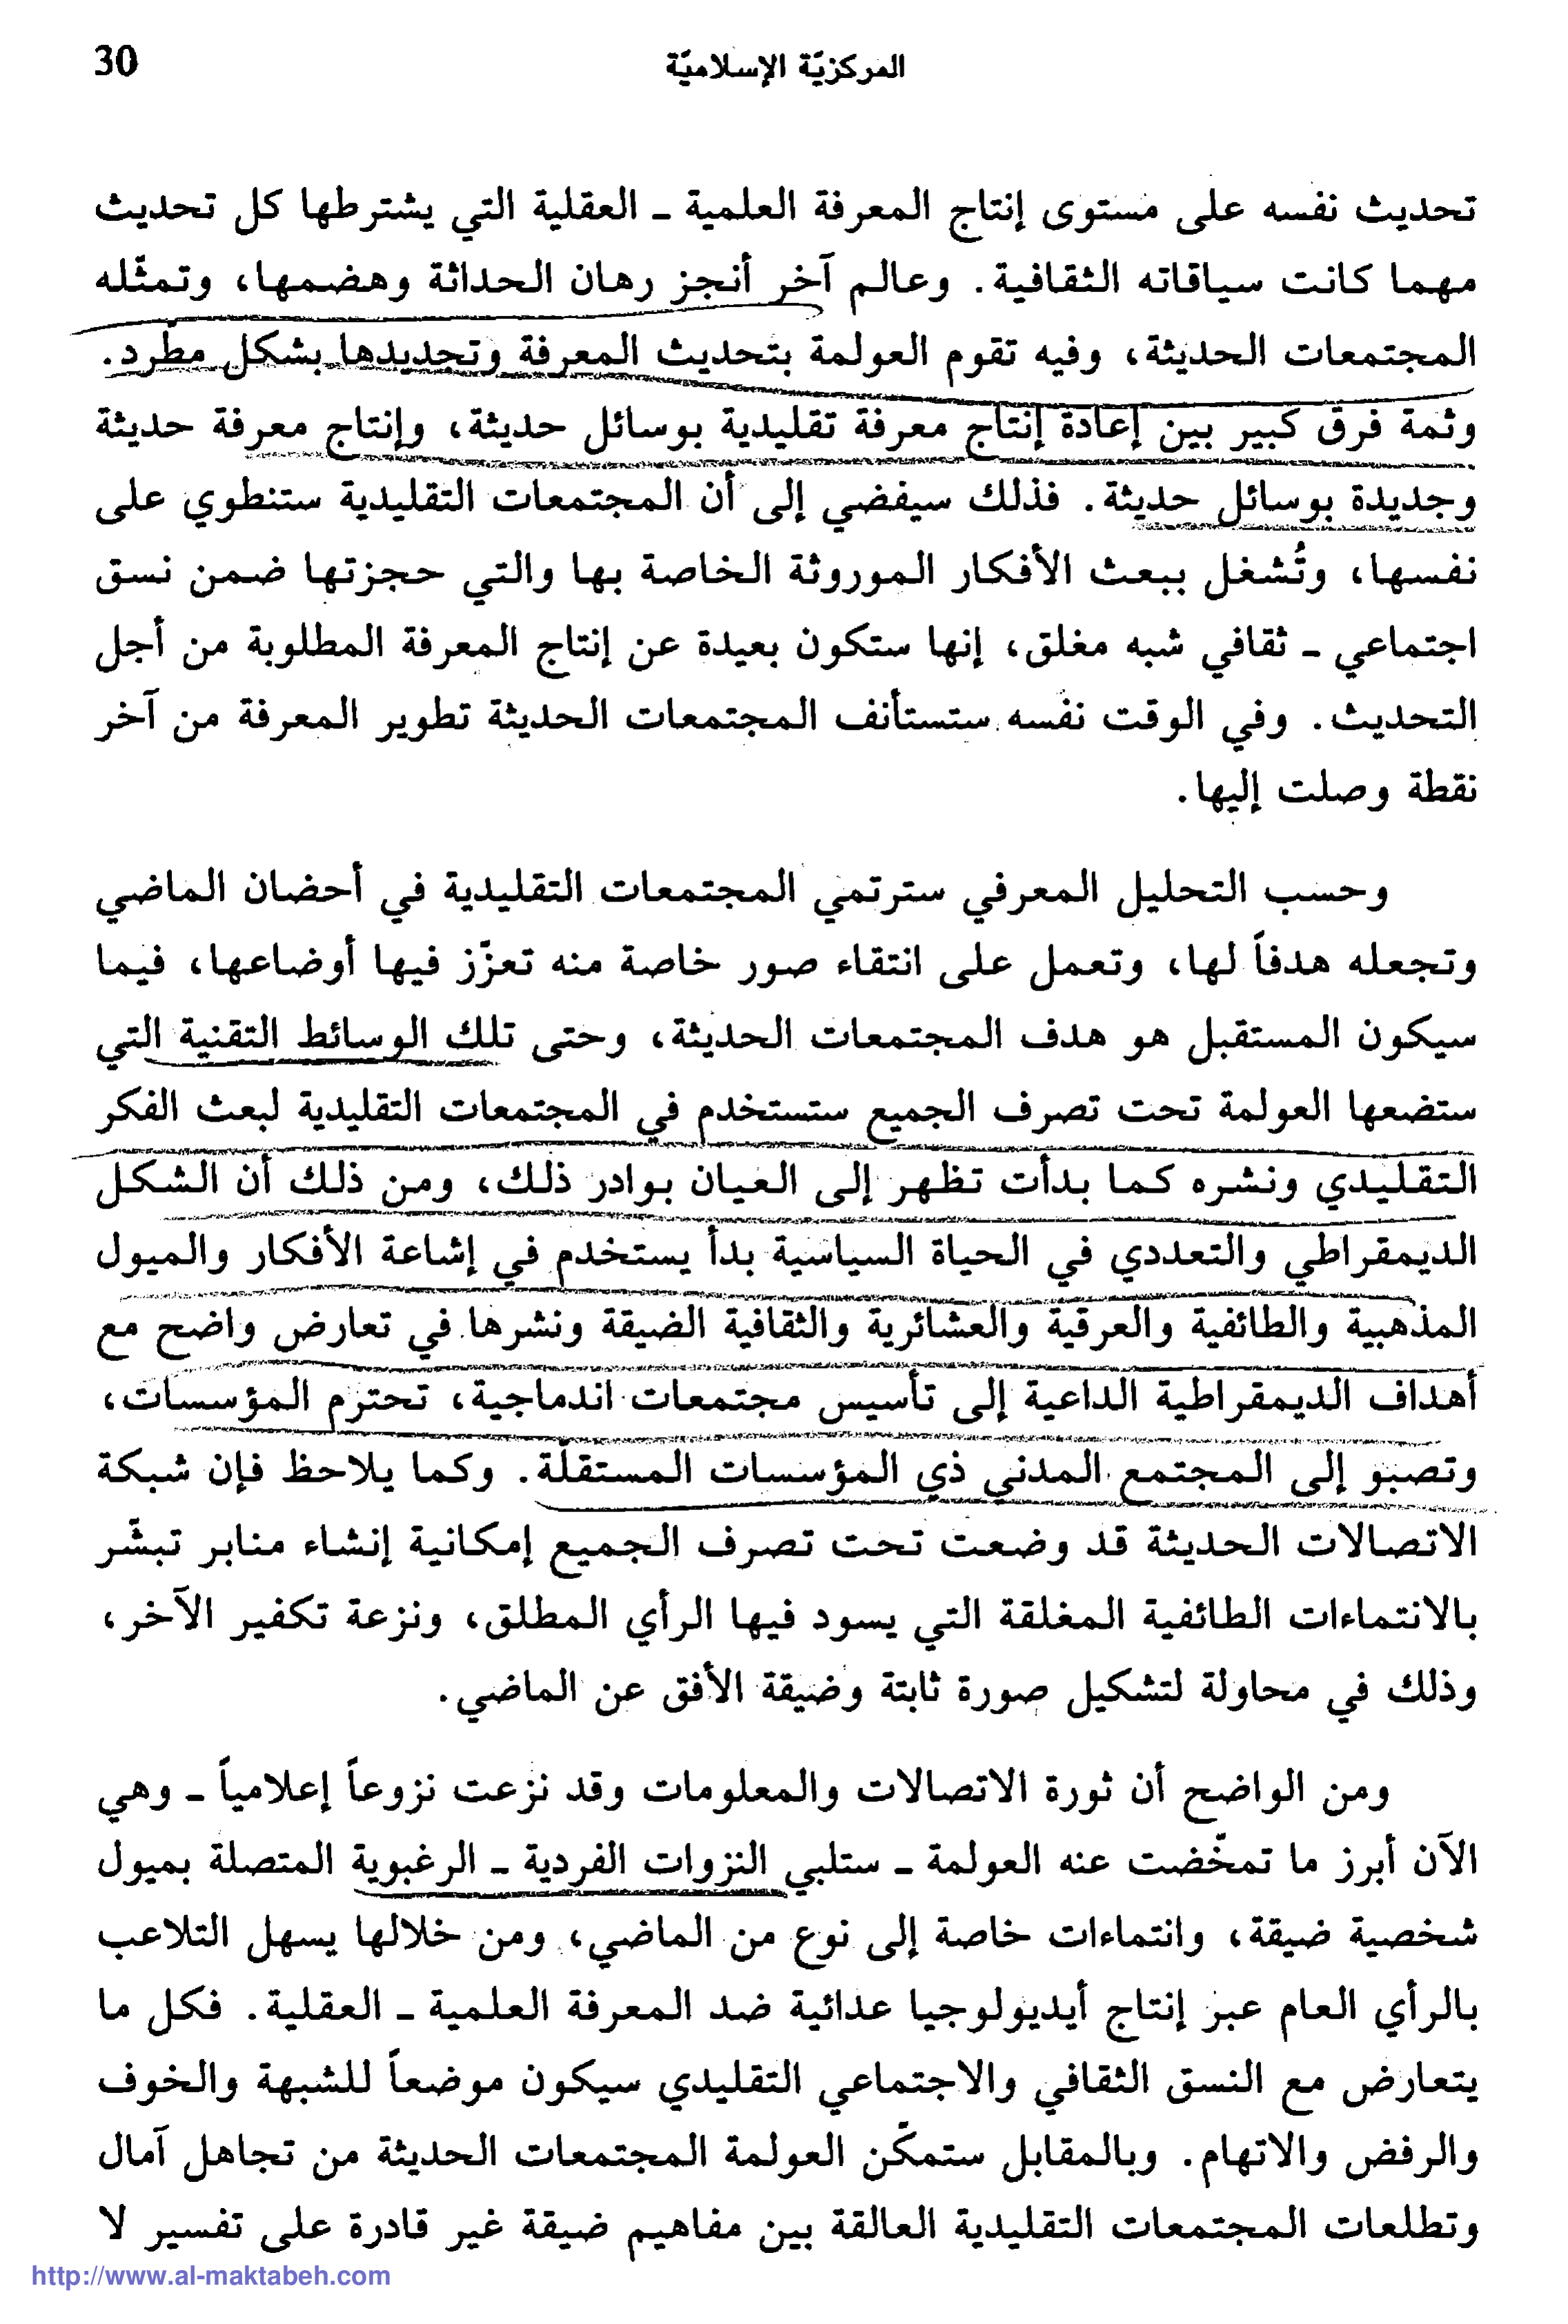 المركزيّة الإسلاميّة 30
تحديث نفسه على مستوى إنتاج المعرفة العلمية ـ العقلية التي يشترطها كل تحديث
مهما كانت سياقاته الثقافية. وعالم آخر أنجز رهان الحداثة وهضمها، وتمثّله
المجتمعات الحديثة، وفيه تقوم العولمة بتحديث المعرفة وتجديدها بشكل مطّرد.
وثمة فرق كبير بين إعادة إنتاج معرفة تقليدية بوسائل حديثة، وإنتاج معرفة حديثة
وجديدة بوسائل حديثة. فذلك سيفضي إلى أن المجتمعات التقليدية ستنطوي على
نفسها، وتُشغل ببعث الأفكار الموروثة الخاصة بها والتي حجزتها ضمن نسق
اجتماعي ـ ثقافي شبه مغلق، إنها ستكون بعيدة عن إنتاج المعرفة المطلوبة من أجل
التحديث. وفي الوقت نفسه ستستأنف المجتمعات الحديثة تطوير المعرفة من آخر
نقطة وصلت إليها.
وحسب التحليل المعرفي سترتمي المجتمعات التقليدية في أحضان الماضي
وتجعله هدفاً لها، وتعمل على انتقاء صور خاصة منه تعزّز فيها أوضاعها، فيما
سيكون المستقبل هو هدف المجتمعات الحديثة، وحتى تلك الوسائط التقنية التي
ستضعها العولمة تحت تصرف الجميع ستستخدم في المجتمعات التقليدية لبعث الفكر
التقليدي ونشره كما بدأت تظهر إلى العيان بوادر ذلك، ومن ذلك أن الشكل
الديمقراطي والتعددي في الحياة السياسية بدأ يستخدم في إشاعة الأفكار والميول
المذهبية والطائفية والعرقية والعشائرية والثقافية الضيقة ونشرها في تعارض واضح مع
أهداف الديمقراطية الداعية إلى تأسيس مجتمعات اندماجية، تحترم المؤسسات،
وتصبو إلى المجتمع المدني ذي المؤسسات المستقلّة. وكما يلاحظ فإن شبكة
الاتصالات الحديثة قد وضعت تحت تصرف الجميع إمكانية إنشاء منابر تبشّر
بالانتماءات الطائفية المغلقة التي يسود فيها الرأي المطلق، ونزعة تكفير الآخر،
وذلك في محاولة لتشكيل صورة ثابتة وضيقة الأفق عن الماضي.
ومن الواضح أن ثورة الاتصالات والمعلومات وقد نزعت نزوعاً إعلامياً ـ وهي
الآن أبرز ما تمخّضت عنه العولمة ـ ستلبي النزوات الفردية ـ الرغبوية المتصلة بميول
شخصية ضيقة، وانتماءات خاصة إلى نوع من الماضي، ومن خلالها يسهل التلاعب
بالرأي العام عبر إنتاج أيديولوجيا عدائية ضد المعرفة العلمية ـ العقلية. فكل ما
يتعارض مع النسق الثقافي والاجتماعي التقليدي سيكون موضعاً للشبهة والخوف
والرفض والاتهام. وبالمقابل ستمكّن العولمة المجتمعات الحديثة من تجاهل آمال
وتطلعات المجتمعات التقليدية العالقة بين مفاهيم ضيقة غير قادرة على تفسير لا
http://www.al-maktabeh.com